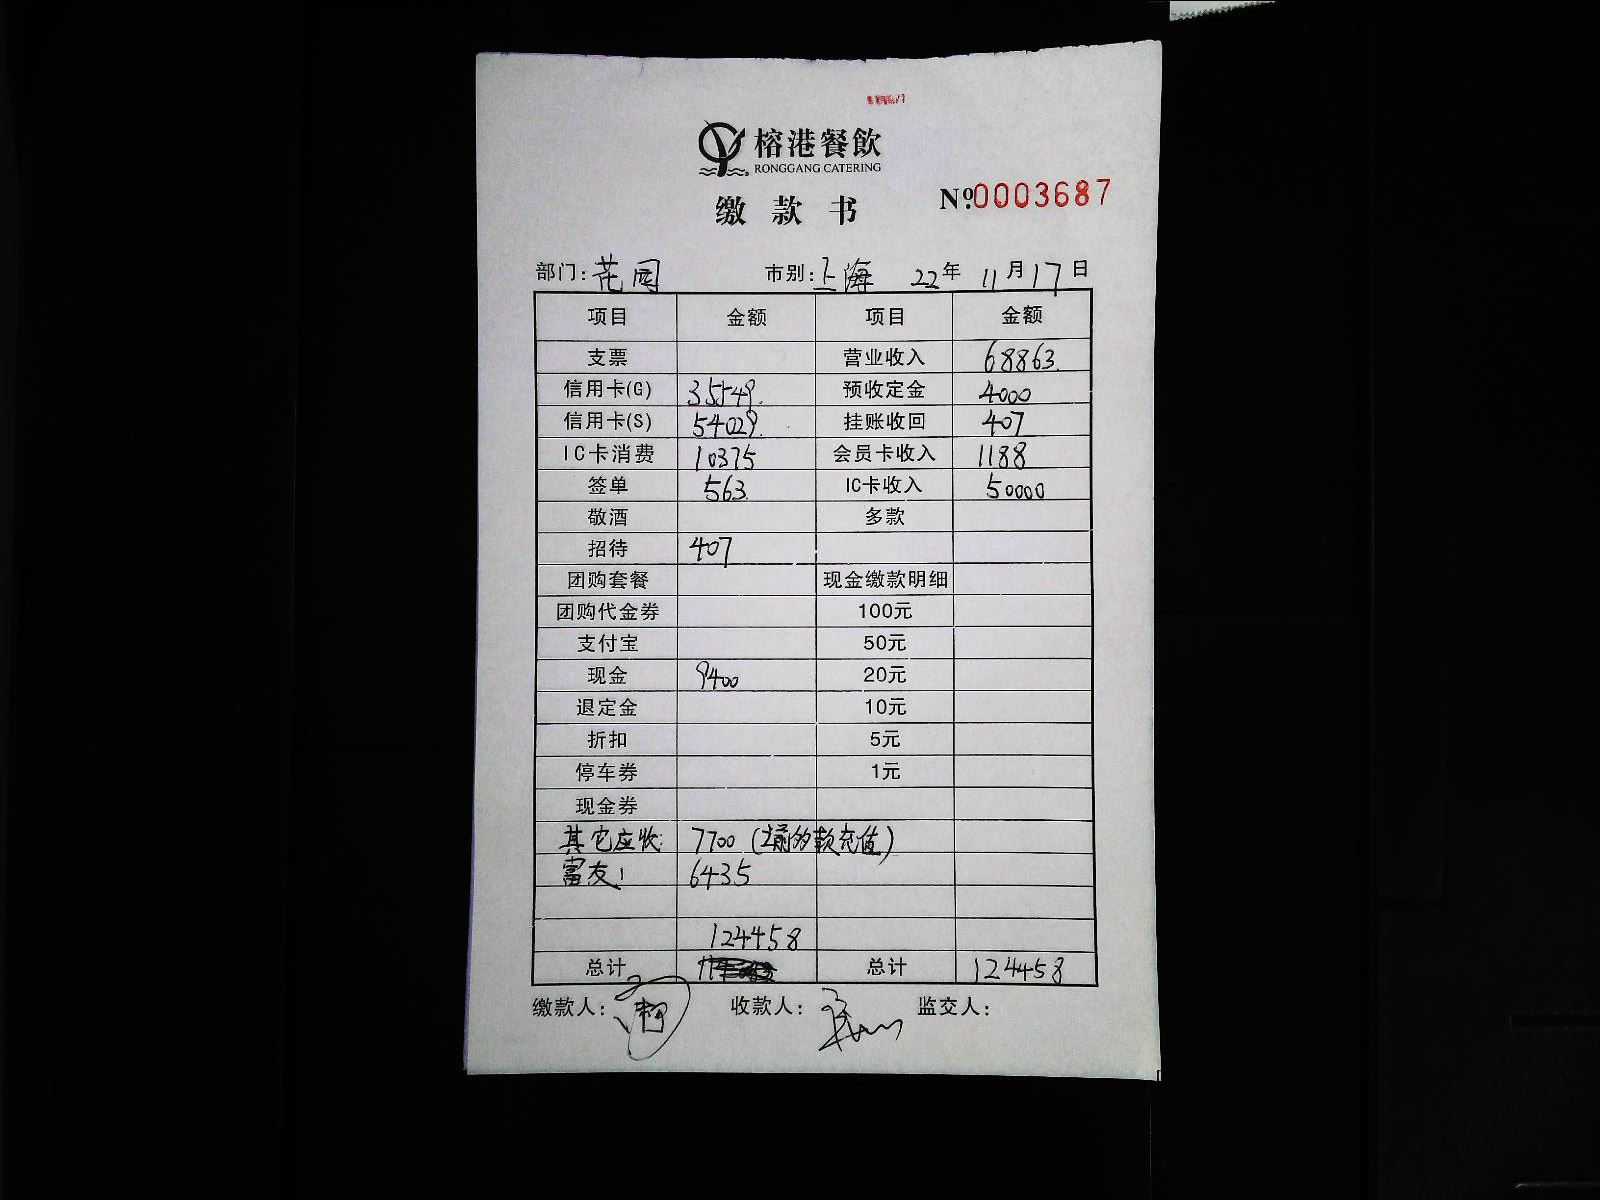 榕港餐飲
RONGGANG CATERING
缴款书
No:0003687
部门:花园 市别:上海 22年 11月17日
项目 金额 项目 金额
支票 营业收入 68863.
信用卡(G) 35549. 预收定金 4000
信用卡(S) 54029. 挂账收回 407
IC卡消费 10375 会员卡收入 1188
签单 563. IC卡收入 50000
敬酒 多款
招待 407
团购套餐 现金缴款明细
团购代金券 100元
支付宝 50元
现金 9400 20元
退定金 10元
折扣 5元
停车券 1元
现金券
其它应收: 7700 (之前的款充值)
富友: 6435
124458
总计 总计 124458
缴款人: 收款人: 监交人: